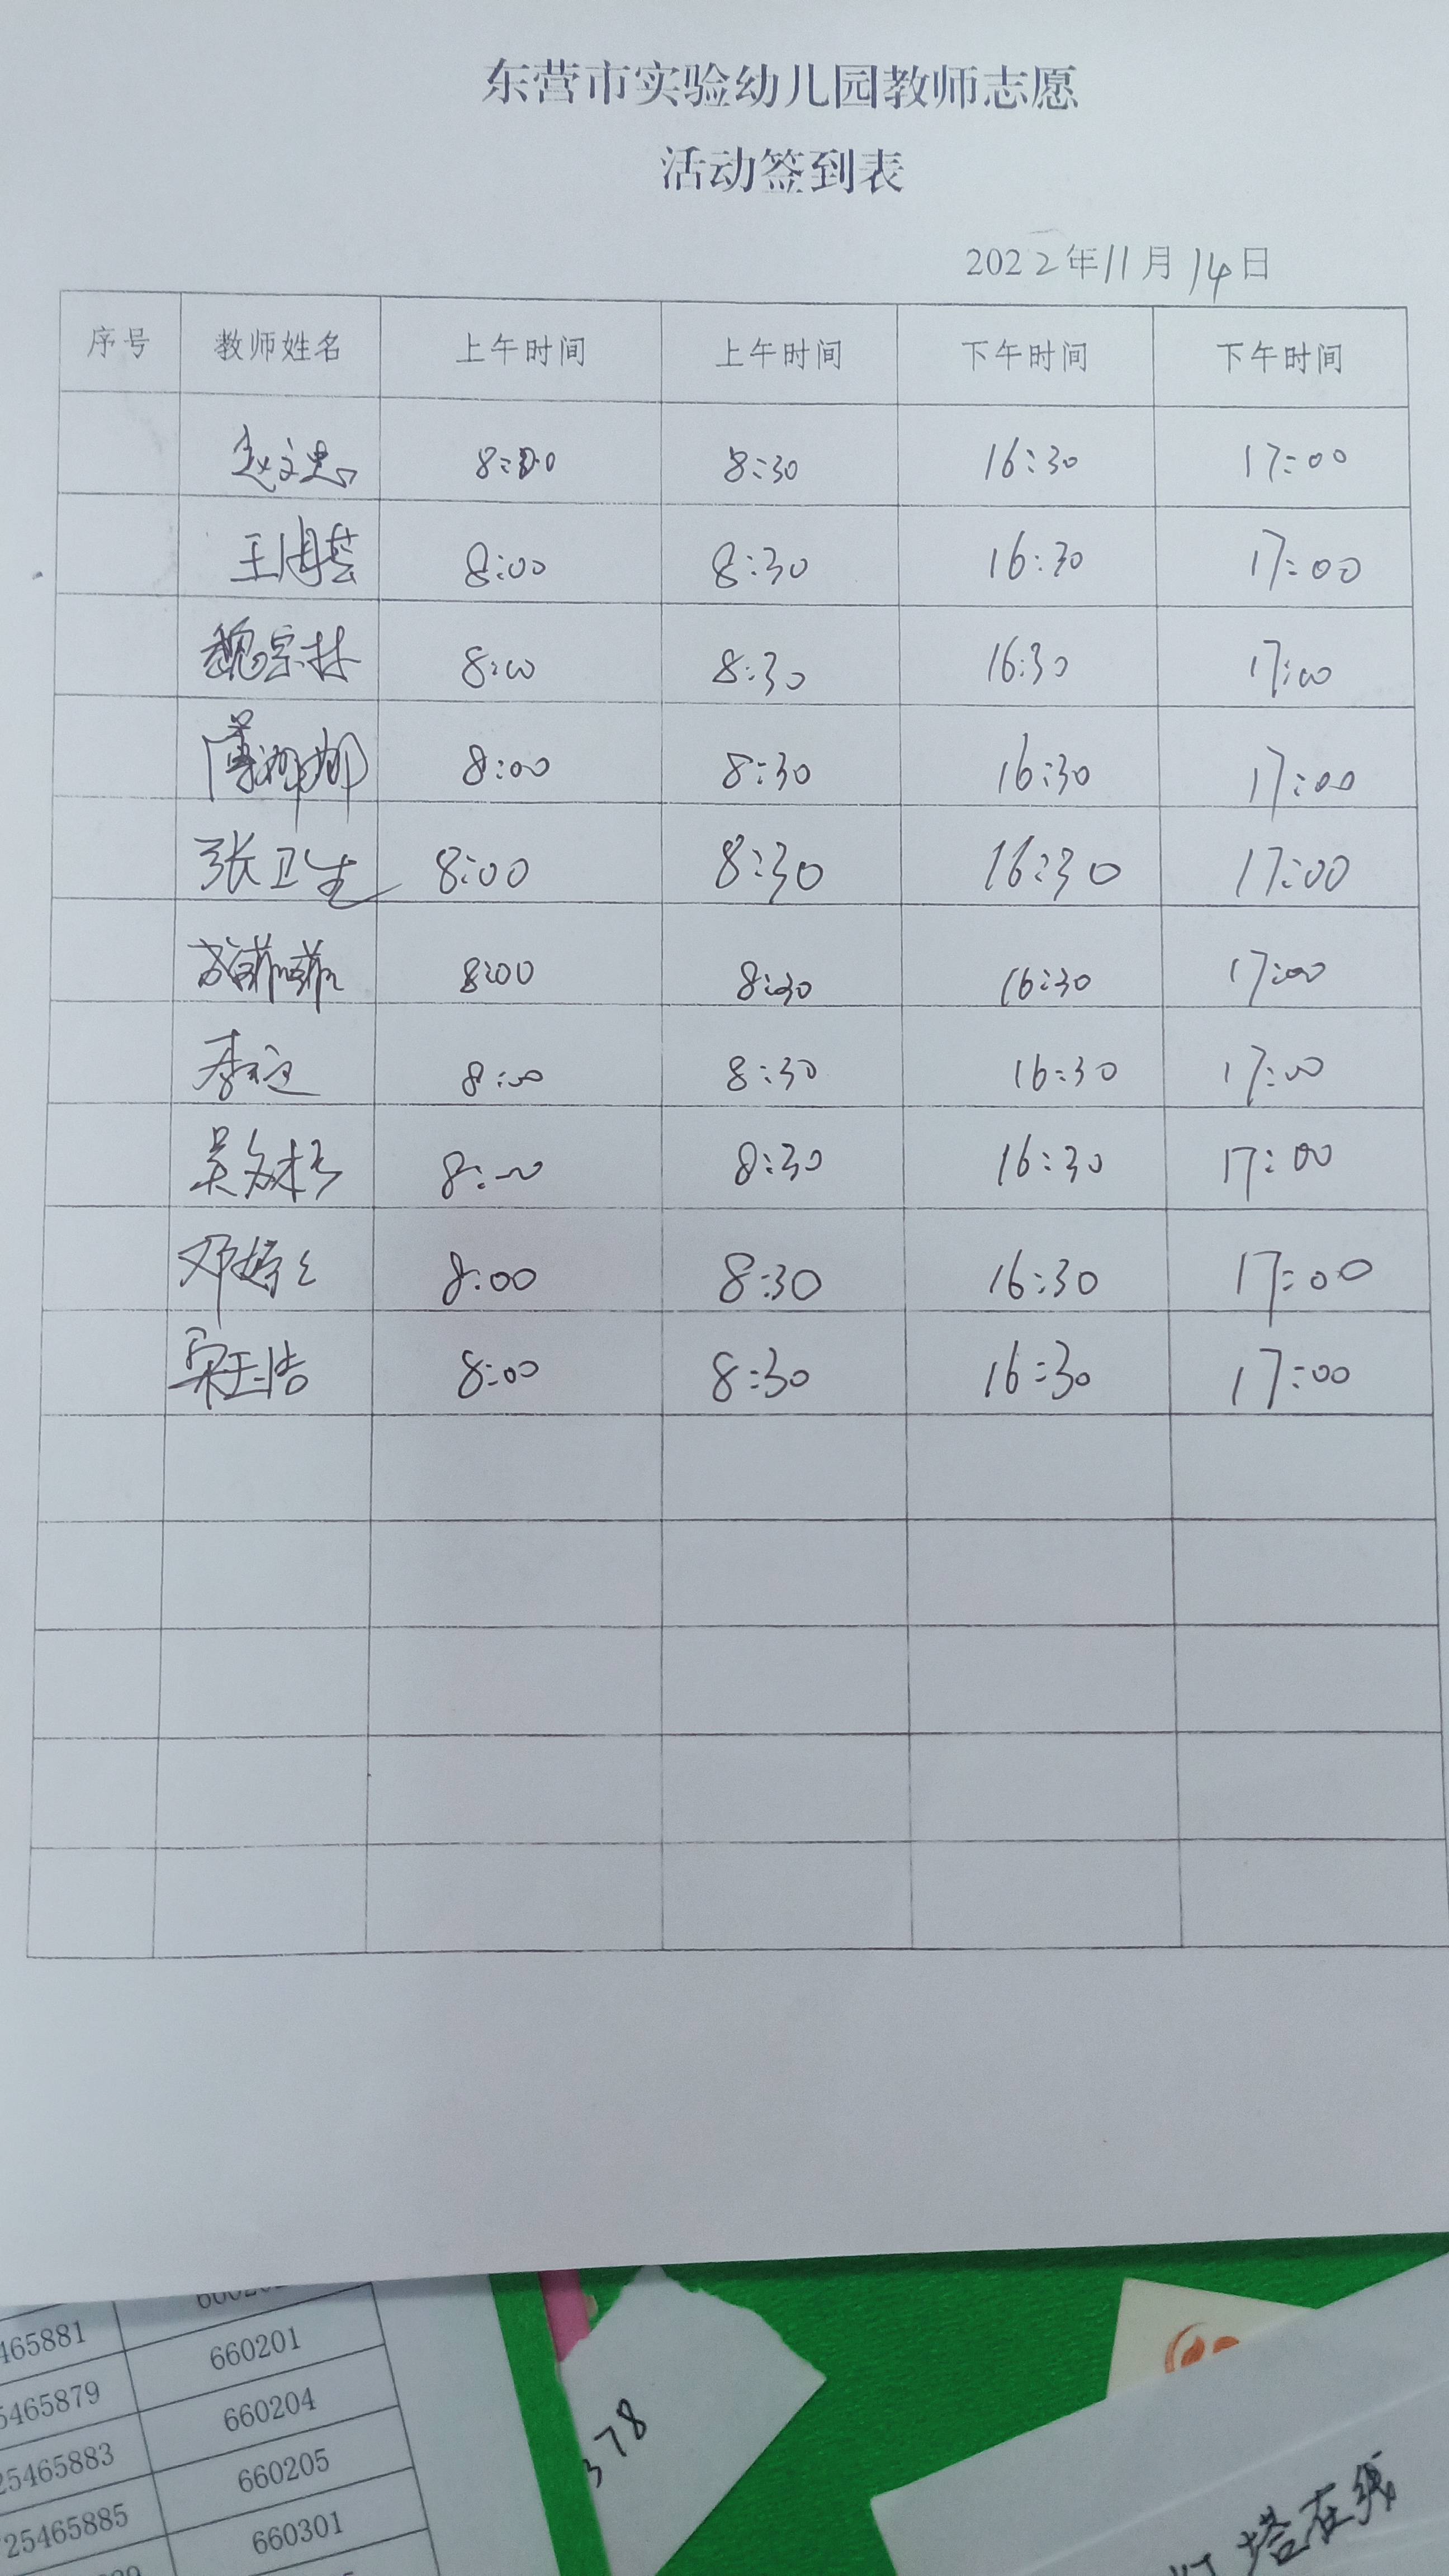 东营市实验幼儿园教师志愿
活动签到表
2022年11月14日
序号 教师姓名 上午时间 上午时间 下午时间 下午时间
赵文忠 8:00 8:30 16:30 17:00
王海芸 8:00 8:30 16:30 17:00
魏宗林 8:00 8:30 16:30 17:00
薄娜娜 8:00 8:30 16:30 17:00
张卫生 8:00 8:30 16:30 17:00
苏菲菲 8:00 8:30 16:30 17:00
李 8:00 8:30 16:30 17:00
吴 8:00 8:30 16:30 17:00
邓婷 8:00 8:30 16:30 17:00
宋玉浩 8:00 8:30 16:30 17:00
465881 660201
5465879 660204
25465883 660205
25465885 660301
378
塔在线